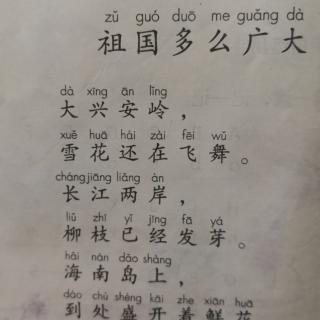 zǔ guó duō me guǎng dà
祖国多么广大
dà xīng ān lǐng
大兴安岭，
xuě huā hái zài fēi wǔ
雪花还在飞舞。
cháng jiāng liǎng àn
长江两岸，
liǔ zhī yǐ jīng fā yá
柳枝已经发芽。
hǎi nán dǎo shàng
海南岛上，
dào chù shèng kāi zhe xiān huā
到处盛开着鲜花